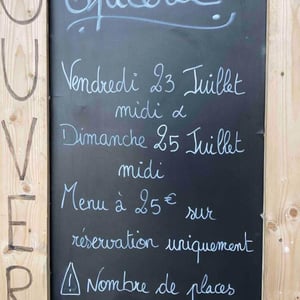 OUVER
Vendredi 23 Juillet
midi &
Dimanche 25 Juillet
midi
Menu à 25€ sur
réservation uniquement
⚠ Nombre de places